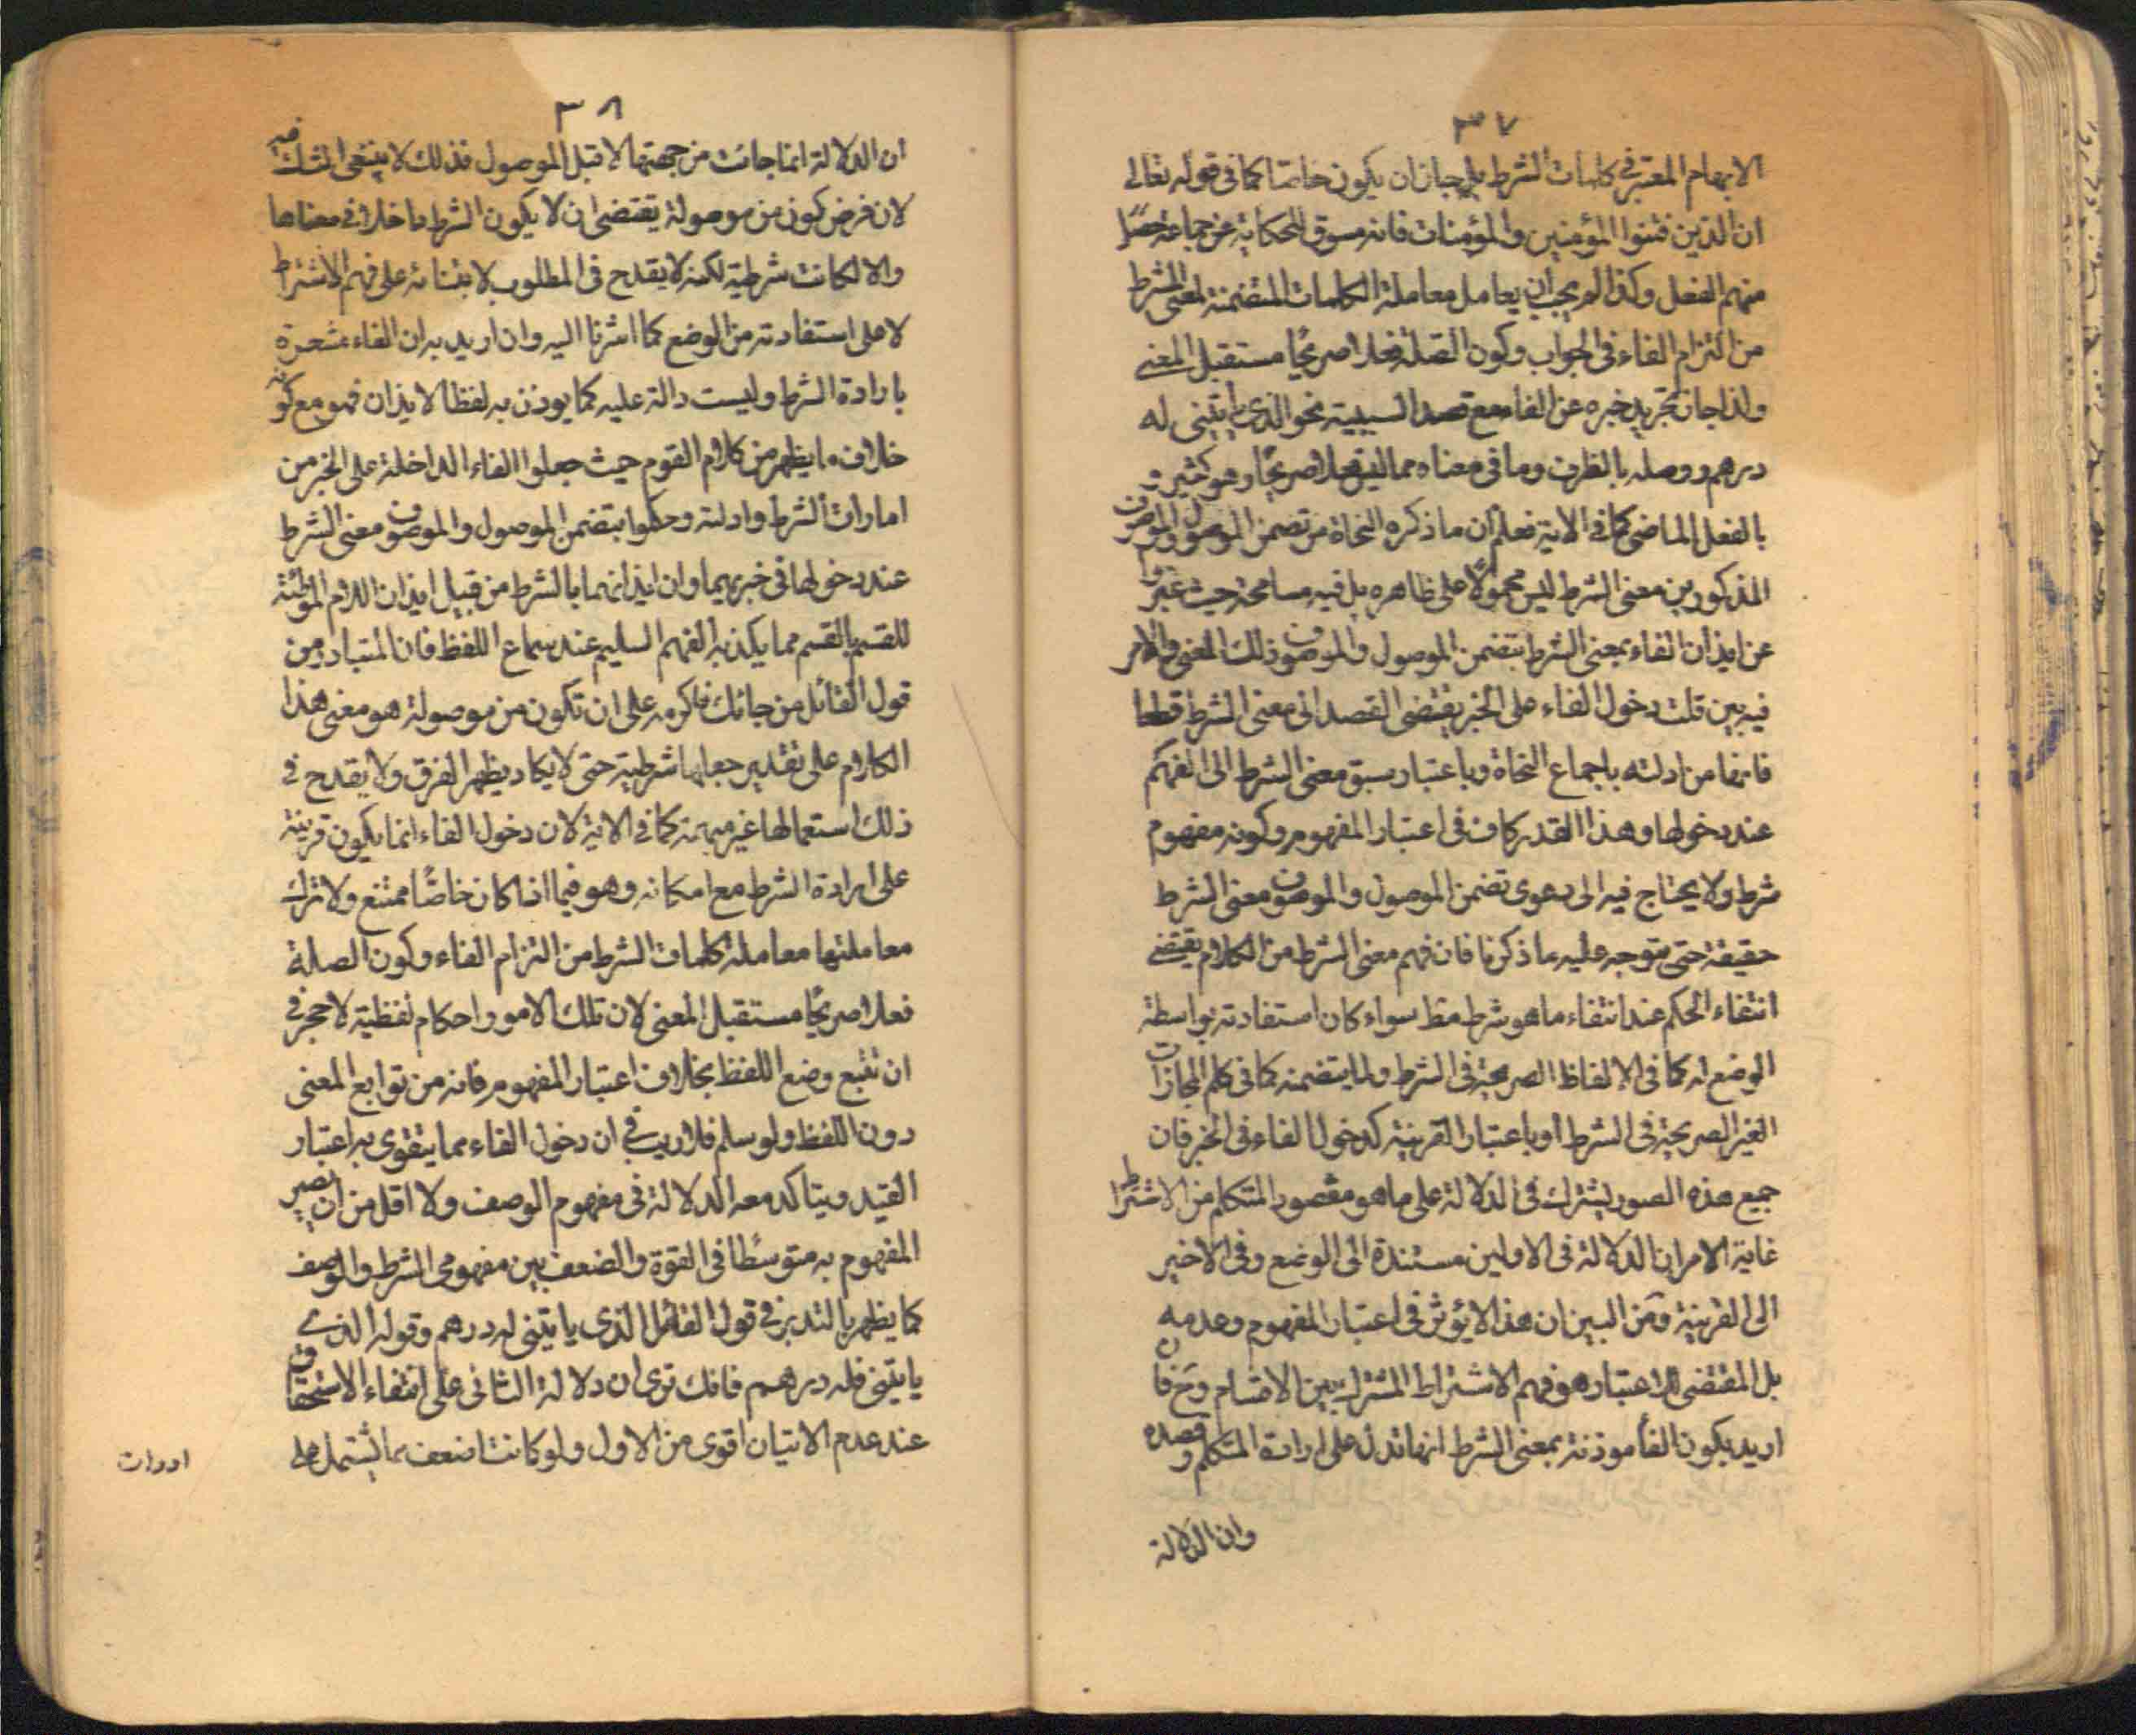 ٣٧
الابهام المعتبر في كلمات الشرط بل جاز ان يكون خاصا كما في قوله تعالى
ان الذين فتنوا المؤمنين والمؤمنات فانه مسوق للحكاية عن جماعة حصل
منهم الفعل وكذا لم يجب ان يعامل معاملة الكلمات المتضمنة لمعنى الشرط
من التزام الفاء في الجواب وكون الصلة فعلا صريحًا مستقبل المعنى
ولذا جاز تجريد خبره عن الفاء مع قصد السببية نحو الذي ياتيني له
درهم ووصله بالظرف وما في معناه مما ليس فعلا صريحًا وهو كثير و
بالفعل الماضي كما في الاية فعلم ان ما ذكره النحاة من تضمن الموصول والموصوف
المذكورين معنى الشرط ليس محمولًا على ظاهره بل فيه مسامحة حيث عبروا
عن ايذان الفاء بمعنى الشرط بتضمن الموصول والموصوف ذلك المعنى والامر
فيه بين قلت دخول الفاء على الخبر يقتضي القصد الى معنى الشرط قطعا
فانها من ادلته باجماع النحاة وباعتبار سبق معنى الشرط الى الفهم
عند دخولها وهذا القدر كاف في اعتبار المفهوم وكونه مفهوم
شرط ولا يحتاج فيه الى دعوى تضمن الموصول والموصوف معنى الشرط
حقيقة حتى يتوجه عليه ما ذكرنا فان فهم معنى الشرط من الكلام يقتضي
انتفاء الحكم عند انتفاء ما هو شرط مط سواء كان استفادته بواسطة
الوضع له كما في الالفاظ الصريحة في الشرط ولما يتضمنه كما في كلم المجازات
الغير الصريحة في الشرط او باعتبار القرينة كدخول الفاء في الخبر فان
جميع هذه الصور يشترك في الدلالة على ما هو مقصور المتكلم من الاشتراط
غاية الامر ان الدلالة في الاولين مستندة الى الوضع وفي الاخير
الى القرينة ومن البين ان هذا لا يؤثر في اعتبار المفهوم وعدمه
بل المقتضى للاعتبار هو فهم الاشتراط المشترك بين الاقسام وح فان
اريد بكون الفاء موذنة بمعنى الشرط انها تدل على ارادة المتكلم وقصده
وان الدلالة
٣٨
ان الدلالة انما جائت من جهتها لا قبل الموصول فذلك لا ينبغي الشك فيه
لان فرض كون من موصولة يقتضي ان لا يكون الشرط داخلا في معناها
والا لكانت شرطية لكنه لا يقدح في المطلوب لابتنائه على فهم الاشتراط
لا على استفادته من الوضع كما اشرنا اليه وان اريد به ان الفاء مشعرة
بارادة الشرط وليست دالة عليه كما يوذن به لفظ الايذان فهو مع كونه
خلاف ما يظهر من كلام القوم حيث جعلوا الفاء الداخلة على الخبر من
امارات الشرط وادلته وحكموا بتضمن الموصول والموصوف معنى الشرط
عند دخولها في خبريهما وان ايذانهما بالشرط من قبيل ايذان اللام الموطئة
للقسم بالقسم مما يكذبه الفهم السليم عند سماع اللفظ فان المتبادر من
قول القائل من جائك فاكرمه على ان تكون من موصولة هو معنى هذا
الكلام على تقدير جعلها شرطية حتى لا يكاد يظهر الفرق ولا يقدح في
ذلك استعمالها غير مبهمة كما في الاية لان دخول الفاء انما يكون قرينة
على ارادة الشرط مع امكانه وهو فيما اذا كان خاصًا ممتنع ولا ترك
معاملتها معاملة كلمات الشرط من التزام الفاء وكون الصلة
فعلا صريحًا مستقبل المعنى لان تلك الامور احكام لفظية لا حجر في
ان تتبع وضع اللفظ بخلاف اعتبار المفهوم فانه من توابع المعنى
دون اللفظ ولو سلم فلا ريب في ان دخول الفاء مما يتقوى به اعتبار
القيد ويتاكد معه الدلالة في مفهوم الوصف ولا اقل من ان يصير
المفهوم به متوسطًا في القوة والضعف بين مفهومي الشرط والوصف
كما يظهر بالتدبر في قول القائل الذي ياتيني له درهم وقوله الذي
ياتيني فله درهم فانك ترى ان دلالة الثاني على انتفاء الاستحقاق
عند عدم الاتيان اقوى من الاول ولو كانت اضعف مما يشتمل على
ادوات